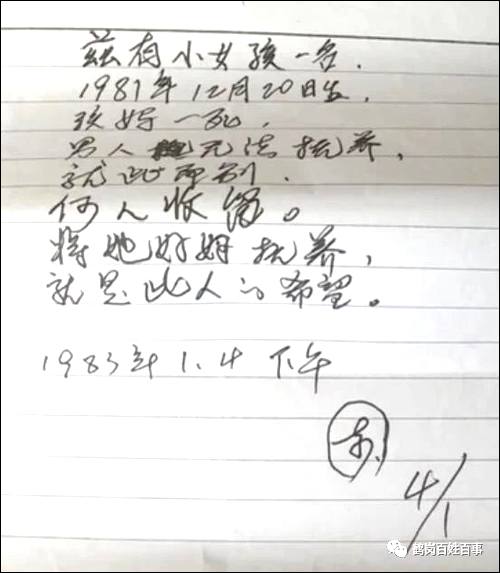 兹有小女孩一名.
1981年12月20日生.
孩妈一死,
男人无法抚养,
就此别.
何人收留。
将她好好抚养,
就是此人的希望。
1983年1.4下午
4/1
鹤岗百姓百事